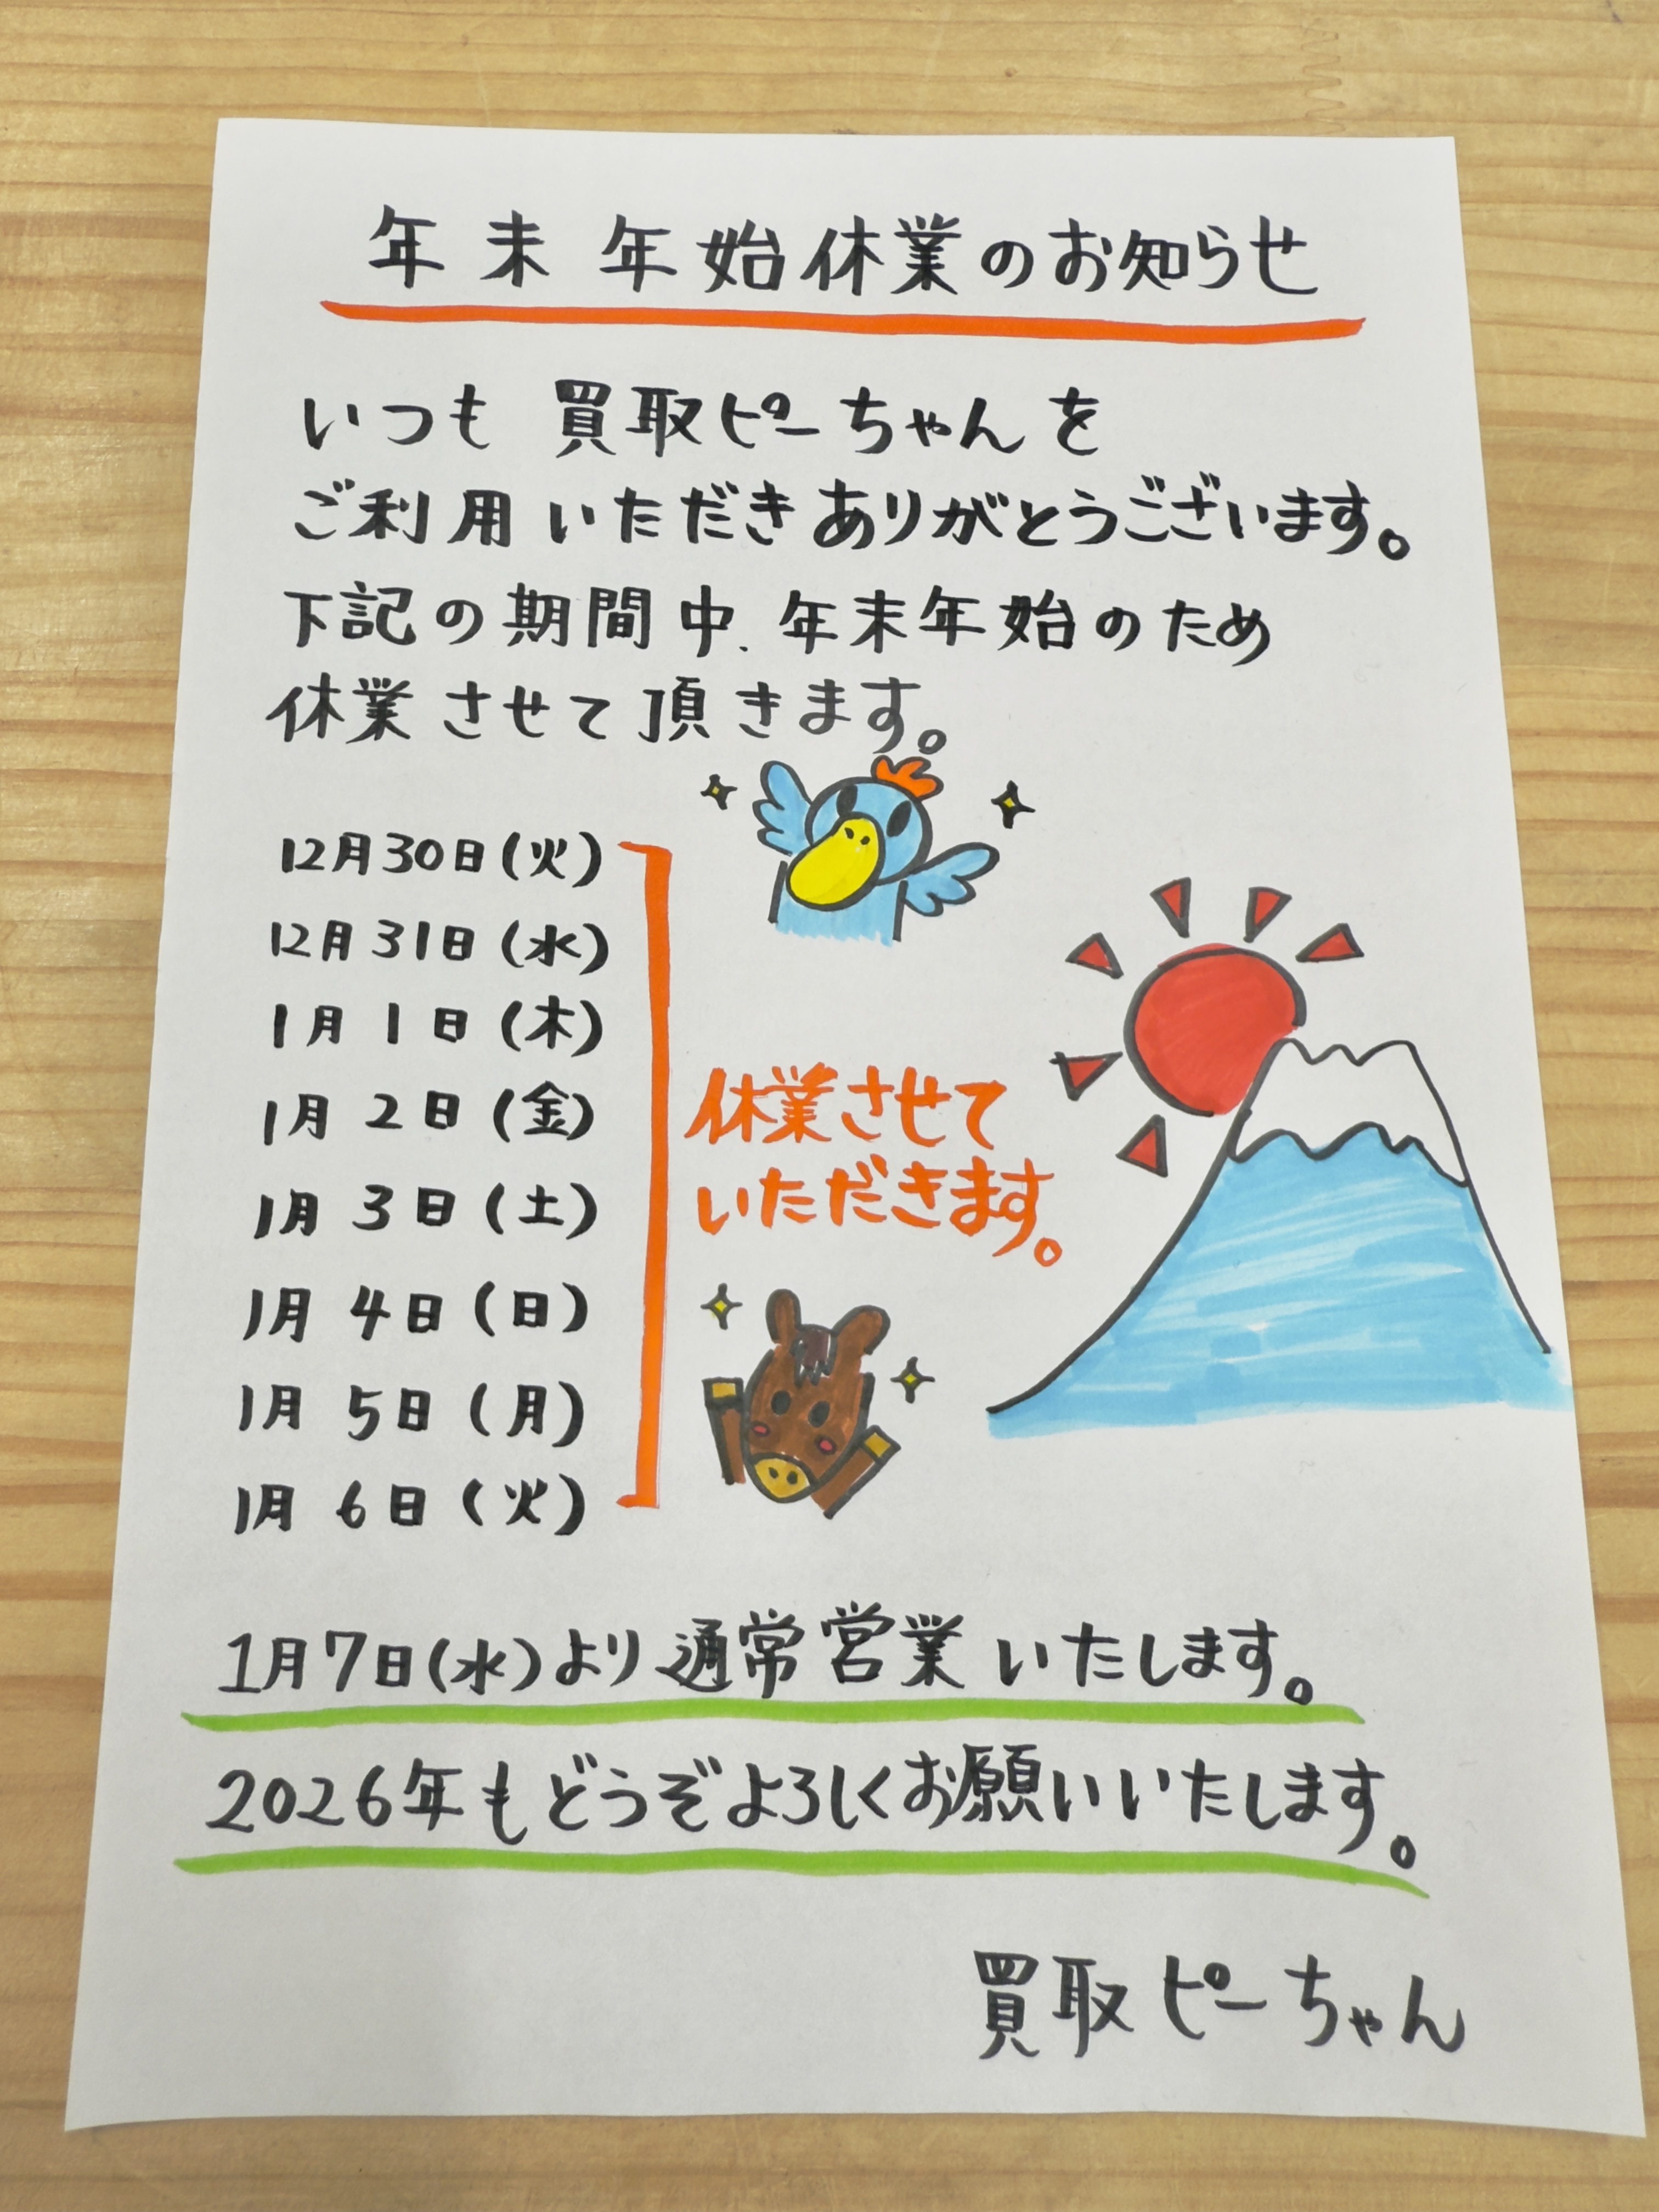 年末年始休業のお知らせ
いつも 買取ピーちゃんを
ご利用いただきありがとうございます。
下記の期間中、年末年始のため
休業させて頂きます。
12月30日(火)
12月31日(水)
1月1日(木)
1月2日(金)
1月3日(土)
1月4日(日)
1月5日(月)
1月6日(火)
休業させて
いただきます。
1月7日(水)より通常営業いたします。
2026年もどうぞよろしくお願いいたします。
買取ピーちゃん